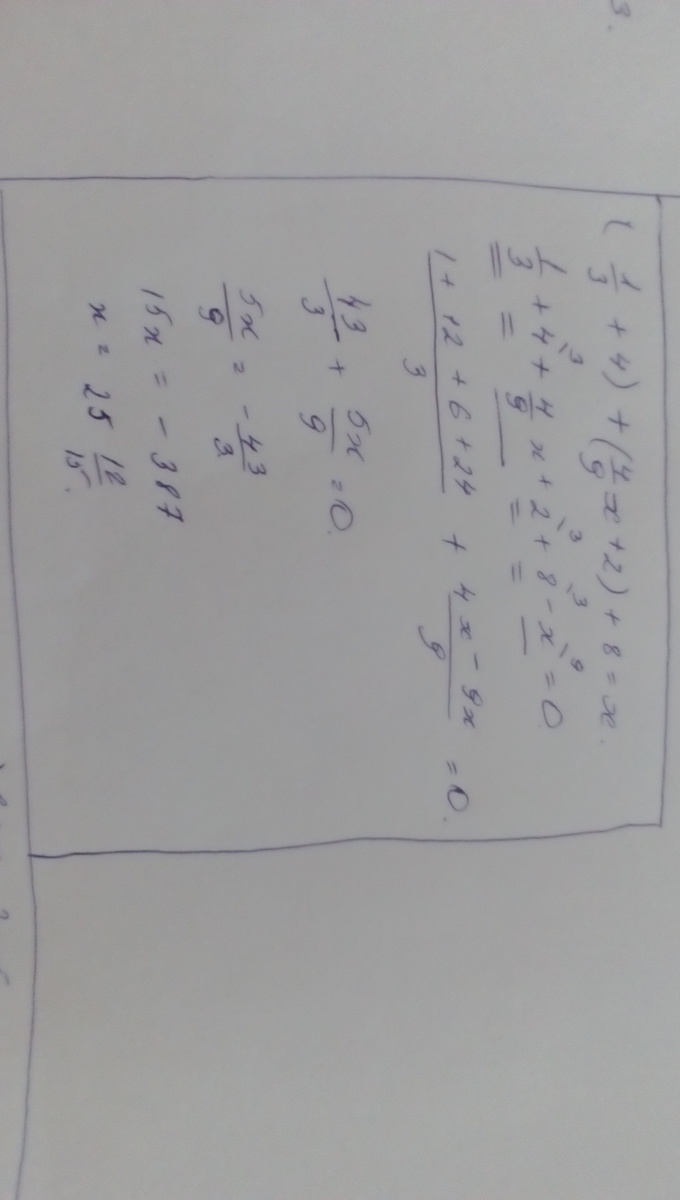 3.
(1/3 + 4) + (4/9 x + 2) + 8 = x.
1/3 + 4\3 + 4/9 x + 2\3 + 8\3 - x\9 = 0
(1 + 12 + 6 + 24)/3 + (4x - 9x)/9 = 0.
43/3 + 5x/9 = 0.
5x/9 = - 43/3
15x = - 387
x = 25 12/15.